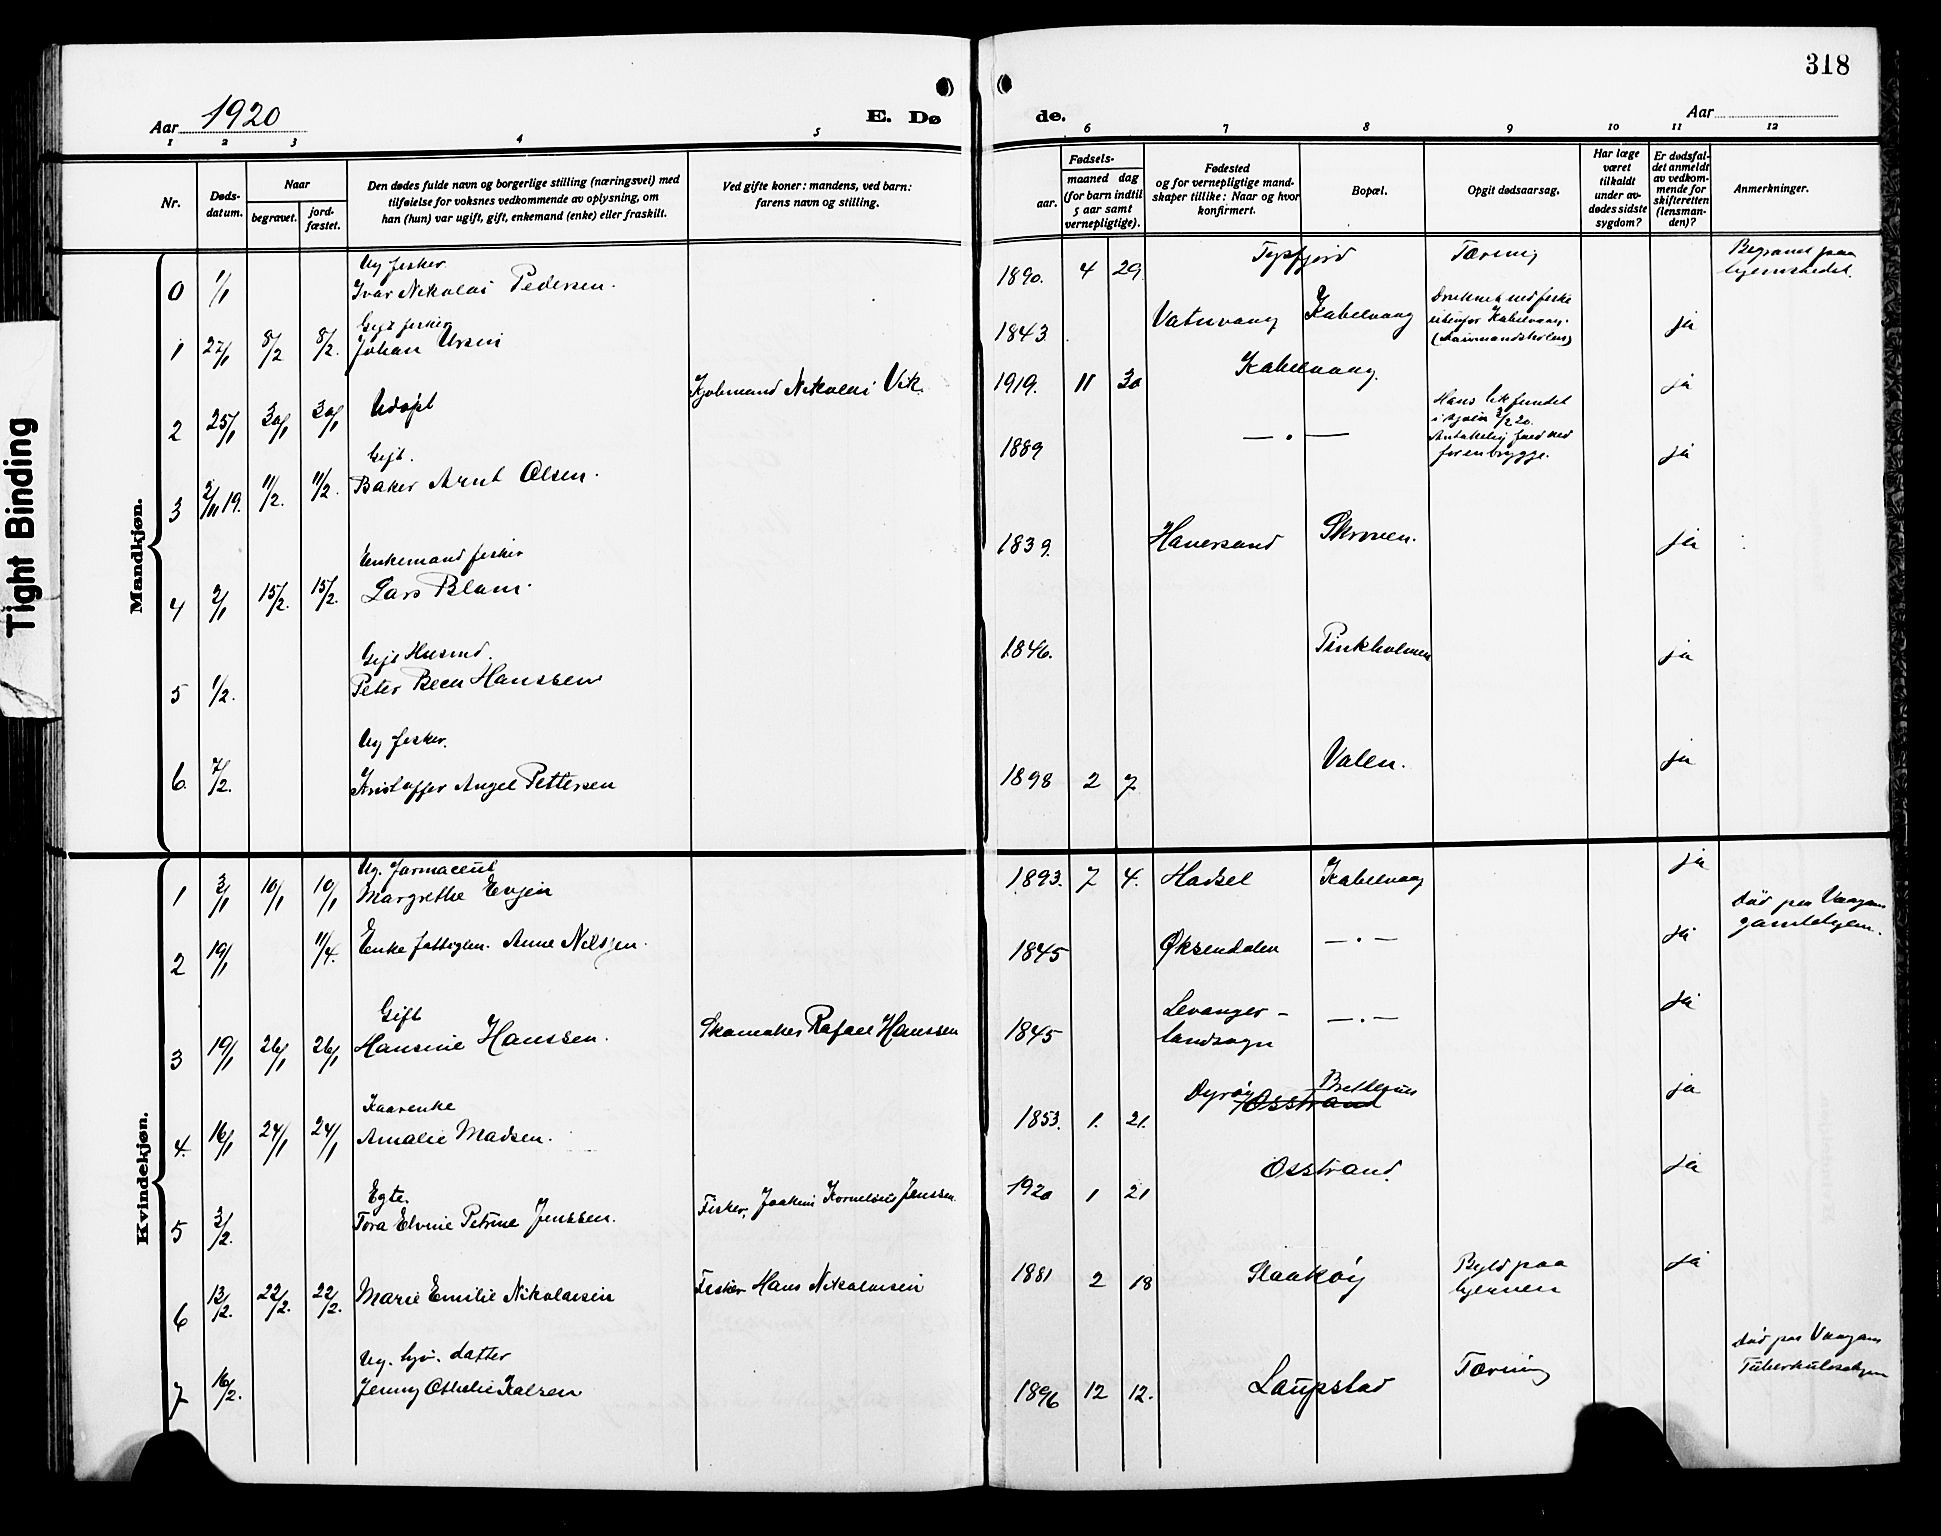 318
Aar 1920
E. Dø
de.
Aar
1 2 3 4 5 6 7 8 9 10 11 12
Nr.
Døds-
datum.
Naar
begravet.
jord-
fæstet.
Den dødes fulde navn og borgerlige stilling (næringsvei) med
tilføielse for voksnes vedkommende av oplysning, om
han (hun) var ugift, gift, enkemand (enke) eller fraskilt.
Ved gifte koner: mandens, ved barn:
farens navn og stilling.
Fødsels-
aar.
maaned dag
(for barn indtil
5 aar samt
vernepligtige).
Fødested
og for vernepligtige mand-
skaper tillike: Naar og hvor
konfirmert.
Bopæl.
Opgit dødsaarsag.
Har læge
været
tilkaldt
under av-
dødes sidste
sygdom?
Er dødsfal-
det anmeldt
av vedkom-
mende for
skifteretten
(lensman-
den)?
Anmerkninger.
Tight Binding
Mandkjøn.
Ug fisker
0 1/1 Ivar Nikolai Pedersen. 1890. 4 29. Tysfjord Tæring Begravet paa
hjemstedet.
Gift fisker
1 27/1 8/2 8/2. Johan Ursin 1843. Vatnvaag Kabelvaag Druknet ved fiske
utenfor Kabelvaag. ja
2 25/1 30/1 30/1 Udøpt Kjøbmand Nikolai Vik. 1919. 11 30 Kabelvaag. ja
Gift.
3 2/11 19. 11/2. 11/2. Baker Arnt Olsen. 1889 — " — Hans lik fundet
i sjøen 3/2 20.
Antakelig faldt ned
for en brygge. ja
Enkemand fisker
4 2/1 15/2. 15/2. Lars Blam. 1839. Haversand Skroven. ja
Gift Husmd.
5 1/2. Peter Been Hanssen 1846. Pinkholmen ja
Ug fisker.
6. 7/2. Kristoffer Angel Pettersen 1898 2 7. Valen. ja
Kvindekjøn.
Ug. farmaceut
1 3/1 10/1 10/1 Margrethe Evjen 1893. 7 4. Hadsel Kabelvaag ja
2 19/1 11/4. Enke fattiglem. Anne Nilssen. 1845 Øksendalen — " — ja død paa Vaagan
gamlehjem.
Gift
3 19/1 26/1 26/1 Hansine Hanssen. Skomaker Rafael Hanssen 1845 Levanger-
landsogn — " — ja
Kaarenke
4. 16/1 24/1 24/1 Amalie Madsen. 1853. 1. 21. Dyrøy Osstrand Brettesnes ja
Egte.
5 3/2. Tora Elvine Petrine Jenssen. Fisker, Joakim Kornelius Jenssen 1920 1 21 Osstrand. ja
6 13/2. 22/2. 22/2. Marie Emilie Nikolaisen Fisker Hans Nikolaisen 1881 2 18 Slaakøy Byld paa
hjernen ja
Ug. hjv. datter
7 16/2. Jenny Othelie Kalsen 1896 12 12. Laupstad Tæring død paa Vaagan
Tuberkulosehjem